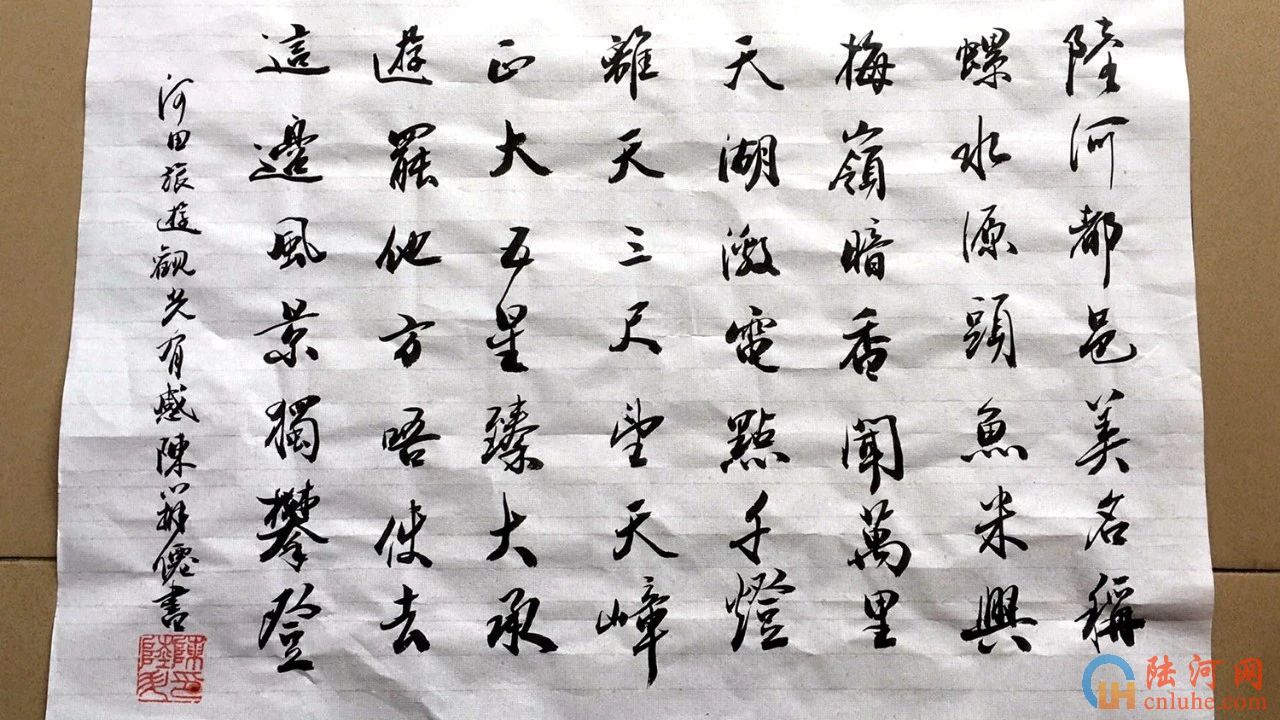 陸河都邑美名稱
螺水源頭魚米興
梅嶺暗香聞萬里
天湖激電點千燈
離天三尺望天嶂
正大五星臻大承
遊罷他方唔使去
這邊風景獨攀登
河田旅遊觀光有感陳
書
陆河网
cnluhe.com